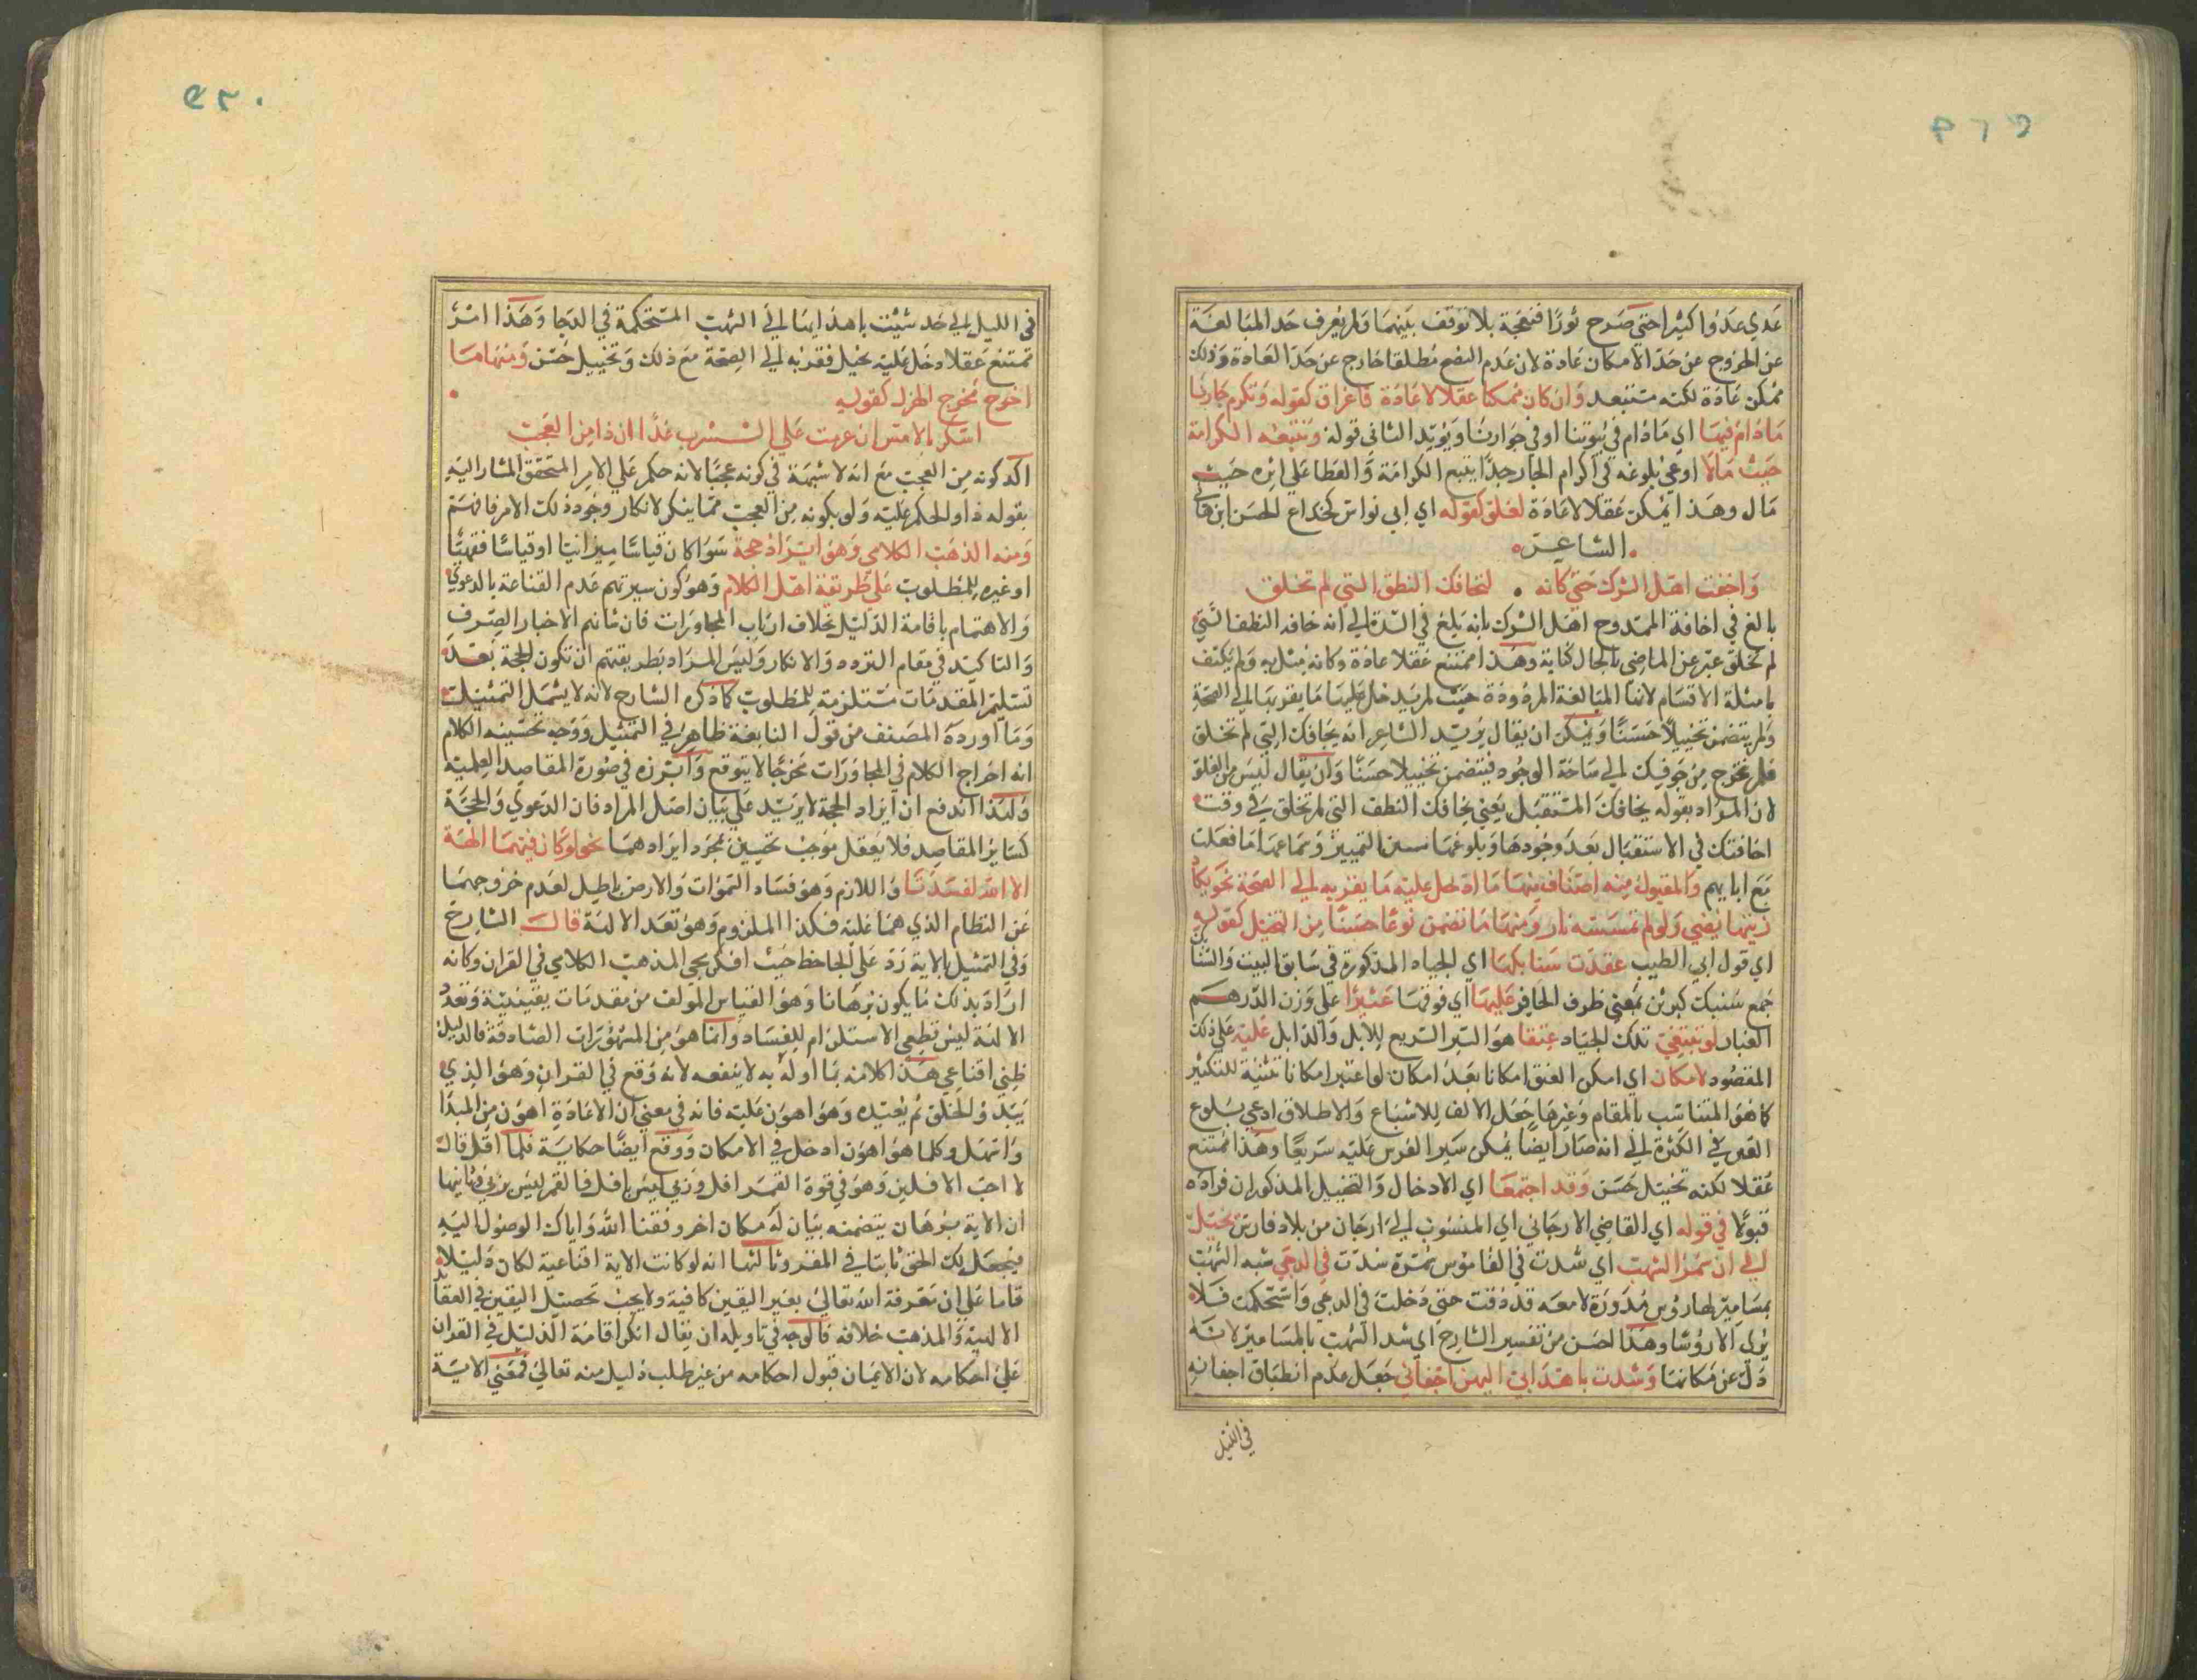 عدي عدوا كثيرا حتي صرح ثورا فنعجة بلا توقف بينهما ولم يعرف حد المبالغة
عن الخروج عن حد الامكان عادة لان عدم النضح مطلقا خارج عن حد العادة وذلك
ممكن عادة لكنه مستبعد وان كان ممكنا عقلا لا عادة فاغراق كقوله ونكرم جارنا
مادام فينا اي مادام في بيوتنا او في جوارنا ويؤيد الثاني قوله ونتبعه الكرامة
حيث مالا ادعي بلوغه في اكرام الجار حدا يتبع الكرامة والعطا علي اثره حيث
مال وهذا يمكن عقلا لا عادة فغلو كقوله اي ابي نواس كخداع الحسن ابن هاني
الشاعر
واخفت اهل الشرك حتي كانه لتخافك النطف التي لم تخلق
بالغ في اخافة الممدوح اهل الشرك بانه بلغ في الشدة الي انه خافه النطف التي
لم تخلق عبر عن الماضي بالحال كناية وهذا ممتنع عقلا عادة وكانه مثل به ولم يكتف
بامثلة الاقسام لانها المبالغة المردودة حيث لم يدخل عليها ما يقربها الي الصحة
ولم يتضمن تخييلا حسنا ويمكن ان يقال يريد الشاعر انه يخافك التي لم تخلق
فلم تخرج من خوفك الي ساحة الوجود فيتضمن تخييلا حسنا وان يقال ليس من الغلو
لان المراد بقوله يخافك المستقبل يعني يخافك النطف التي لم تخلق في وقت
اخافتك في الاستقبال بعد وجودها وبلوغها سن التمييز وسماعها ما فعلت
مع ابايهم والمقبول منه اصناف منها ما ادخل عليه ما يقربه الي الصحة نحو يكاد
زيتها يضي ولو لم تمسسه نار ومنها ما تضمن نوعا حسنا من التخيل كقوله
اي قول ابي الطيب عقدت سنابكها اي الجياد المذكورة في سابق البيت والسنابك
جمع سنبك كبرثن بمعني طرف الحافر عليها اي فوقها عثيرا علي وزن الدرهم
الغبار لو تبتغي تلك الجياد عنقا هو السير السريع للابل والدابل عليه علي ذلك
المقصود لامكان اي امكن العنق امكانا بعد امكان لو اعتبر امكانا تثنية للتكثير
كما هو المتناسب بالمقام وغيرها جعل الالف للاشباع والاطلاق ادعي بلوغ
الغبر في الكثرة الي انه صار ايضا يمكن سير الفرس عليه سريعا وهذا ممتنع
عقلا لكنه تخيل حسن وقد اجتمعا اي الادخال والتخييل المذكوران فزاده
قبولا في قوله اي القاضي الارجاني اي المنسوب الي ارجان من بلاد فارس يخيل
لي ان سمر الشهب اي شدت في القاموس سمره شدت في الدجي شبه الشهب
بمسامير لها روس مدورة لامعه قد دقت حتي دخلت في الدجي واستحكمت فلا
يري الا روشا وهذا احسن من تفسير الشارح اي شد الشهب بالمسامير لانه
دل عن مكانها وشدت باهدابي اليهن اجفاني جعل عدم انطباق اجفانه
في الليل
في الليل الي حد شبت باهدابها الي الشهب المستحكمة في الدجا وهذا امر
تمتنع عقلا دخل عليه يخيل فقربه الي الصحة مع ذلك وتخييل حسن ومنها ما
اخرج مخرج الهزل كقوله
اسكر بالامس ان عزمت علي الشرب غدا ان ذا من العجب
اكد كونه من العجب مع انه لا شبهة في كونه عجبا لانه حكم علي الامر المتحقق المشار اليه
بقوله ذا والحكم عليه ولو بكونه من العجب مما ينكر لانكار وجود ذلك الامر فافهم
ومنه المذهب الكلامي وهو ايراد حجة سوا كان قياسا ميزانيا او قياسا فقهيا
او غيره للمطلوب علي طريقة اهل الكلام وهو كون سيرتهم عدم القناعة بالدعوي
والاهتمام باقامة الدليل بخلاف ارباب المحاورات فان شانهم الاخبار الصرف
والتاكيد في مقام التردد والانكار وليس المراد بطريقتهم ان تكون الحجة بعد
تسليم المقدمات مستلزمة للمطلوب كما ذكره الشارح لانه لا يشمل التمثيلات
وما اورده المصنف من قول النابغة ظاهر في التمثيل ووجه تحسينه الكلام
انه اخراج الكلام في المحاورات مخرجا لا يتوقع وابرزه في صورة المقاصد العلمية
ولهذا اندفع ان ايراد الحجة لا يزيد علي بيان اصل المراد فان الدعوي والحجة
كساير المقاصد فلا يعقل موجب تحسين مجرد ايرادهما نحو لو كان فيهما الهة
الا الله لفسدتا واللازم وهو فساد السموات والارض باطل لعدم خروجهما
عن النظام الذي هما عليه فكذا الملزوم وهو تعدد الالهة قال الشارح
وفي التمثيل بالاية رد علي الجاحظ حيث انكر مجي المذهب الكلامي في القران وكانه
اراد بذلك ما يكون برهانا وهو القياس المولف من مقدمات يقينية وتعدد
الالهة ليس قطعي الاستلزام للفساد وانما هو من المشهورات الصادقة فالدليل
ظني اقناعي هذا كلامه بما اوله به لا ينفعه لانه وقع في القران وهو الذي
يبدؤ الخلق ثم يعيده وهو اهون عليه فانه في معني ان الاعادة اهون من المبدا
واسهل وكلما هو اهون ادخل في الامكان ووقع ايضا حكاية فلما افل قال
لا احب الافلين وهو في قوة القمر افل وربي ليس بافل فالقمر ليس بربي وثانيها
ان الاية برهان يتضمنه بيان له مكان اخر وفقنا الله واياك الوصول اليه
فيجعل لك الحق ثابتا في المقر وثالثها انه لو كانت الاية اقناعية لكان دليلا
قاما علي ان معرفة الله تعالي بغير اليقين كافية ولا يجب تحصيل اليقين في العقايد
الالهية والمذهب خلافه فالوجه في تاويله ان يقال انكر اقامة الدليل في القران
علي احكامه لان الايمان قبول احكامه من غير طلب دليل منه تعالي فمعني الاية